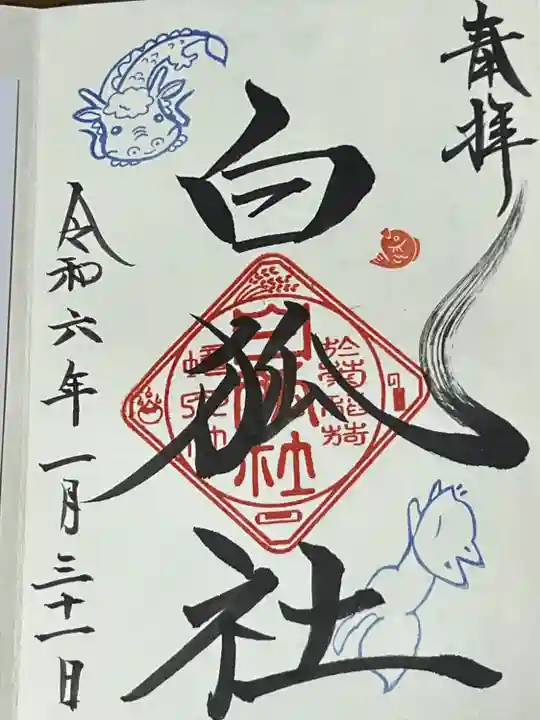 奉拝
白狐社
令和六年一月三十一日